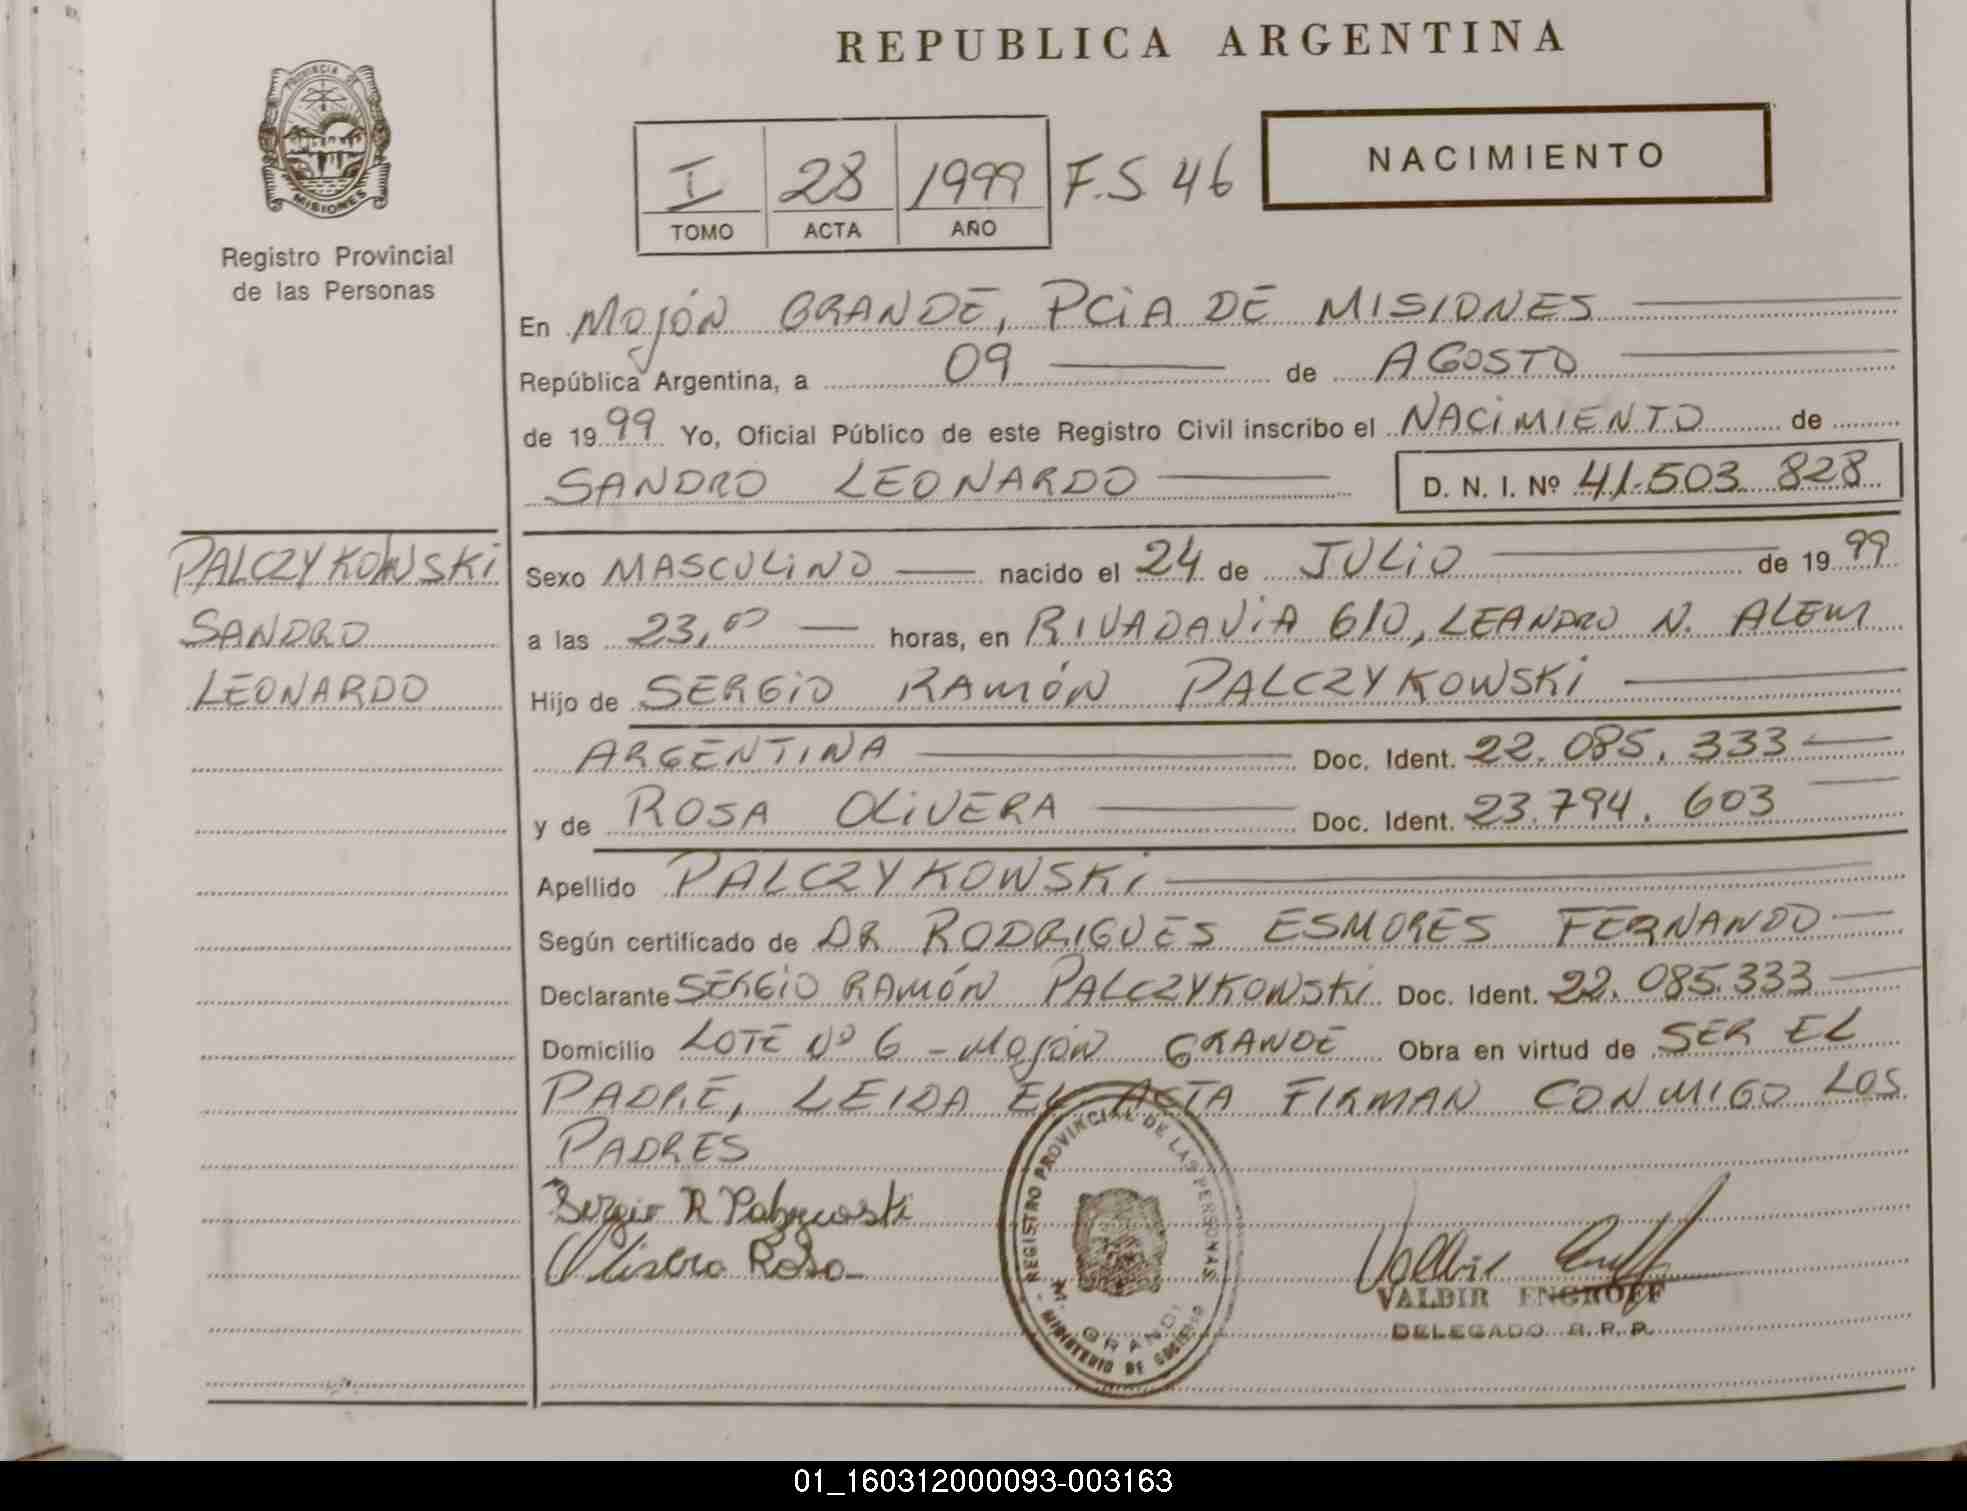 REPUBLICA ARGENTINA
PROVINCIA DE
MISIONES
Registro Provincial
de las Personas
I 28 1999 F.S 46
TOMO ACTA AÑO
NACIMIENTO
En MOJÓN GRANDE, PCIA DE MISIONES
República Argentina, a 09 de AGOSTO
de 1999 Yo, Oficial Público de este Registro Civil inscribo el NACIMIENTO de
SANDRO LEONARDO D. N. I. Nº 41.503.828
PALCZYKOWSKI
SANDRO
LEONARDO
Sexo MASCULINO nacido el 24 de JULIO de 1999
a las 23,00 horas, en RIVADAVIA 610, LEANDRO N. ALEM
Hijo de SERGIO RAMÓN PALCZYKOWSKI
ARGENTINA Doc. Ident. 22.085.333
y de ROSA OLIVERA Doc. Ident. 23.794.603
Apellido PALCZYKOWSKI
Según certificado de DR RODRIGUES ESMORES FERNANDO
Declarante SERGIO RAMÓN PALCZYKOWSKI Doc. Ident. 22.085.333
Domicilio LOTE Nº 6 - MOJÓN GRANDE Obra en virtud de SER EL
PADRE, LEIDA EL ACTA FIRMAN CONMIGO LOS
PADRES
Sergio R
Olivera Rosa
REGISTRO PROVINCIAL DE LAS PERSONAS
MINISTERIO DE GOBIERNO
M. GRANDE
Valdir
VALDIR ENGROFF
DELEGADO R. P. P.
01_160312000093-003163